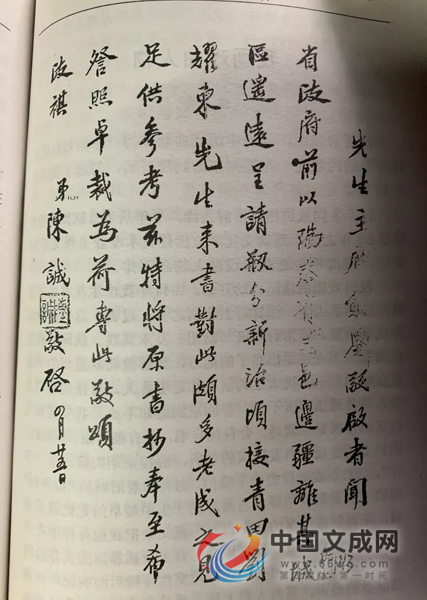 先生主席勛鑒敬啟者聞
省政府前以瑞泰青邑邊疆離其
區遼遠呈請劃分新治頃接青田劉
耀東先生来書對此頗多老成之見
足供參考茲特將原書抄奉至希
詧照卓裁為荷專此敬頌
政祺
弟陳誠敬啓四月廿五日
中国文成网
www.66wc.com
第一媒体 第一时间